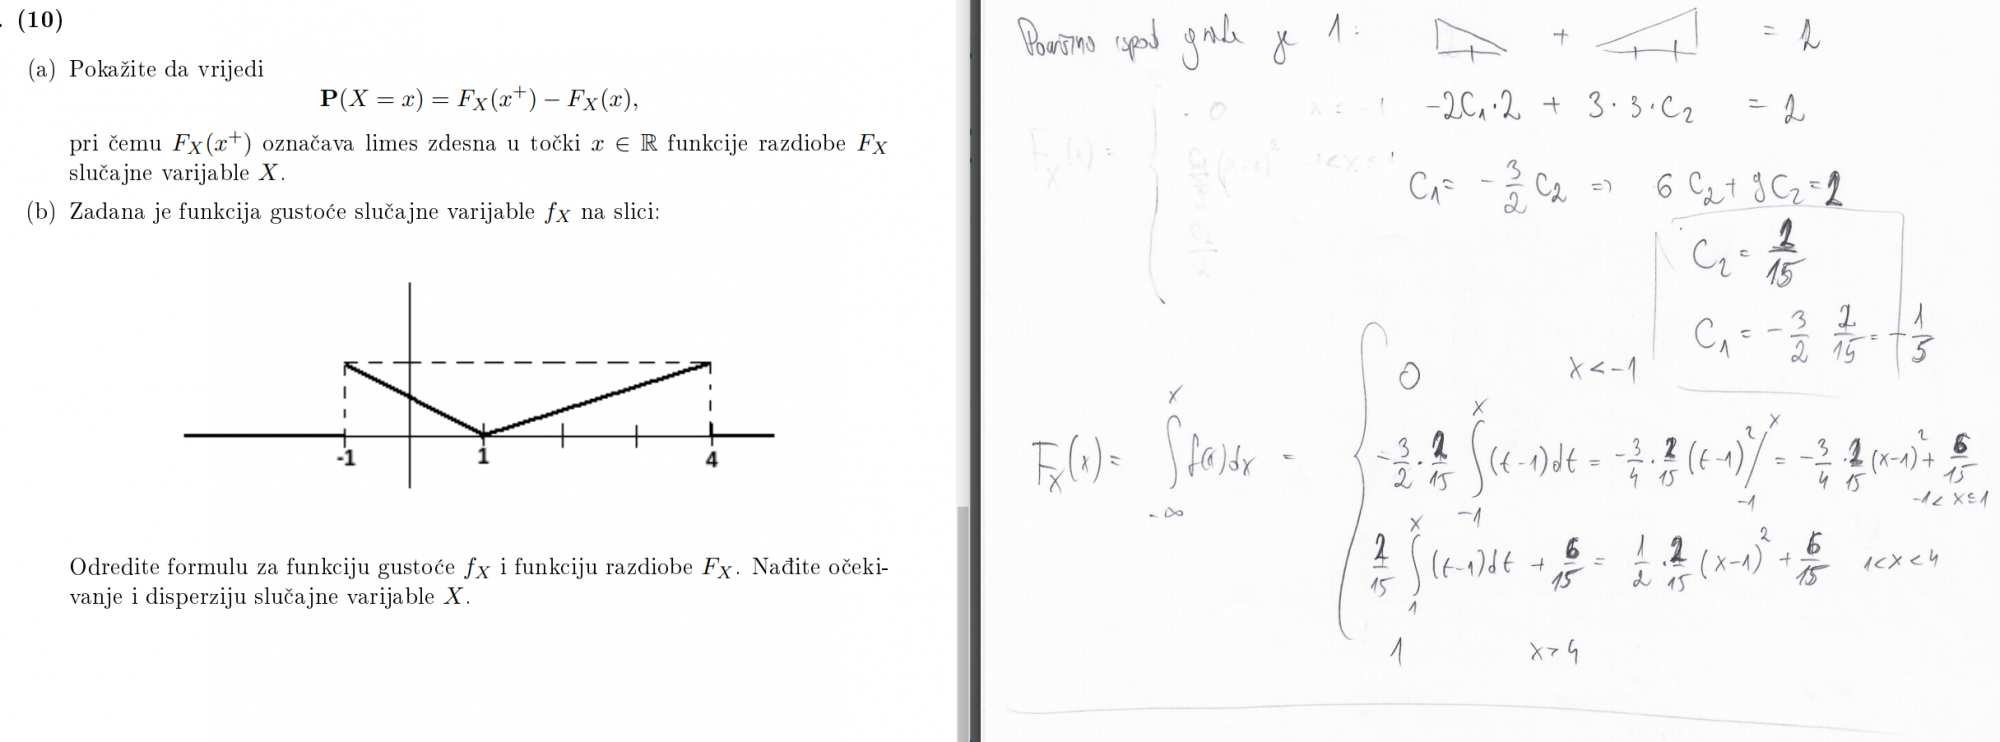 . (10)
(a) Pokažite da vrijedi
P(X = x) = F_X(x⁺) − F_X(x),
pri čemu F_X(x⁺) označava limes zdesna u točki x ∈ ℝ funkcije razdiobe F_X
slučajne varijable X.
(b) Zadana je funkcija gustoće slučajne varijable f_X na slici:
-1 1 4
Odredite formulu za funkciju gustoće f_X i funkciju razdiobe F_X. Nađite očeki-
vanje i disperziju slučajne varijable X.
ispod je 1: + = 2
-2C₁·2 + 3·3·C₂ = 2
C₁ = -3/2 C₂ => 6 C₂ + 9C₂ = 2
C₂ = 2/15
C₁ = -3/2 2/15 = -1/5
0 x < -1
F_X(x) = ∫_{-∞}^{x} f(x)dx =
-3/2 · 2/15 ∫_{-1}^{x} (t-1)dt = -3/4 · 2/15 (t-1)² /_{-1}^{x} = -3/4 · 2/15 (x-1)² + 6/15 -1 < x ≤ 1
2/15 ∫_{1}^{x} (t-1)dt + 6/15 = 1/2 · 2/15 (x-1)² + 6/15 1<x<4
1 x > 4